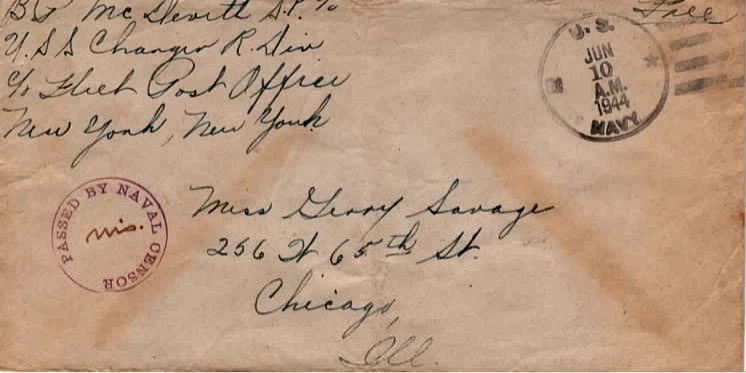 B F McDevitt S.F. %
Free
U.S.S Changer R. Div
c/o Fleet Post Office
New York, New York
U. S.
JUN
10
A.M.
1944
NAVY
PASSED BY NAVAL CENSOR
Miss Gerry Savage
256 W 65th St.
Chicago,
Ill.